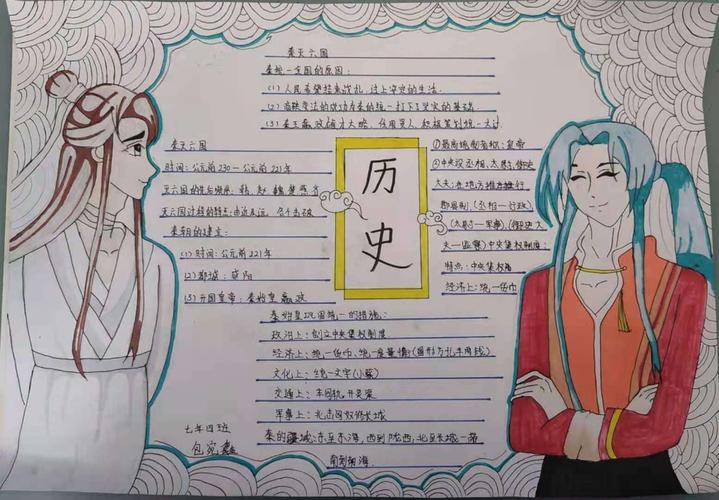 秦灭六国
秦统一全国的原因：
(1) 人民希望结束战乱，过上安定的生活.
(2) 商鞅变法的成功为秦的统一打下了坚实的基础.
(3) 秦王嬴政雄才大略，任用贤人，积极筹划统一大计
秦灭六国
时间：公元前230一公元前221年
灭六国的先后顺序：韩，赵 魏 楚 燕 齐
灭六国过程的特点：由近及远，各个击破
秦朝的建立：
(1) 时间：公元前221年
(2) 都城：咸阳
(3) 开国皇帝：秦始皇嬴政
历史
①最高统制者称：皇帝
②中央设丞相，太尉，御史
大夫；在地方推行
郡县制，(丞相一行政)
(太尉一军事)，(御史大
夫一监察)中央集权制度：
特点：中央集权
经济上：统一货币
秦始皇巩固统一的措施：
政治上：创立中央集权制度
经济上：统一货币，统一度量衡(圆形方孔半两钱)
文化上：统一文字(小篆)
交通上：车同轨，开灵渠
军事上：北击匈奴修长城
秦的疆域：东至东海，西到陇西，北至长城一带
南到南海.
七年四班
包宛